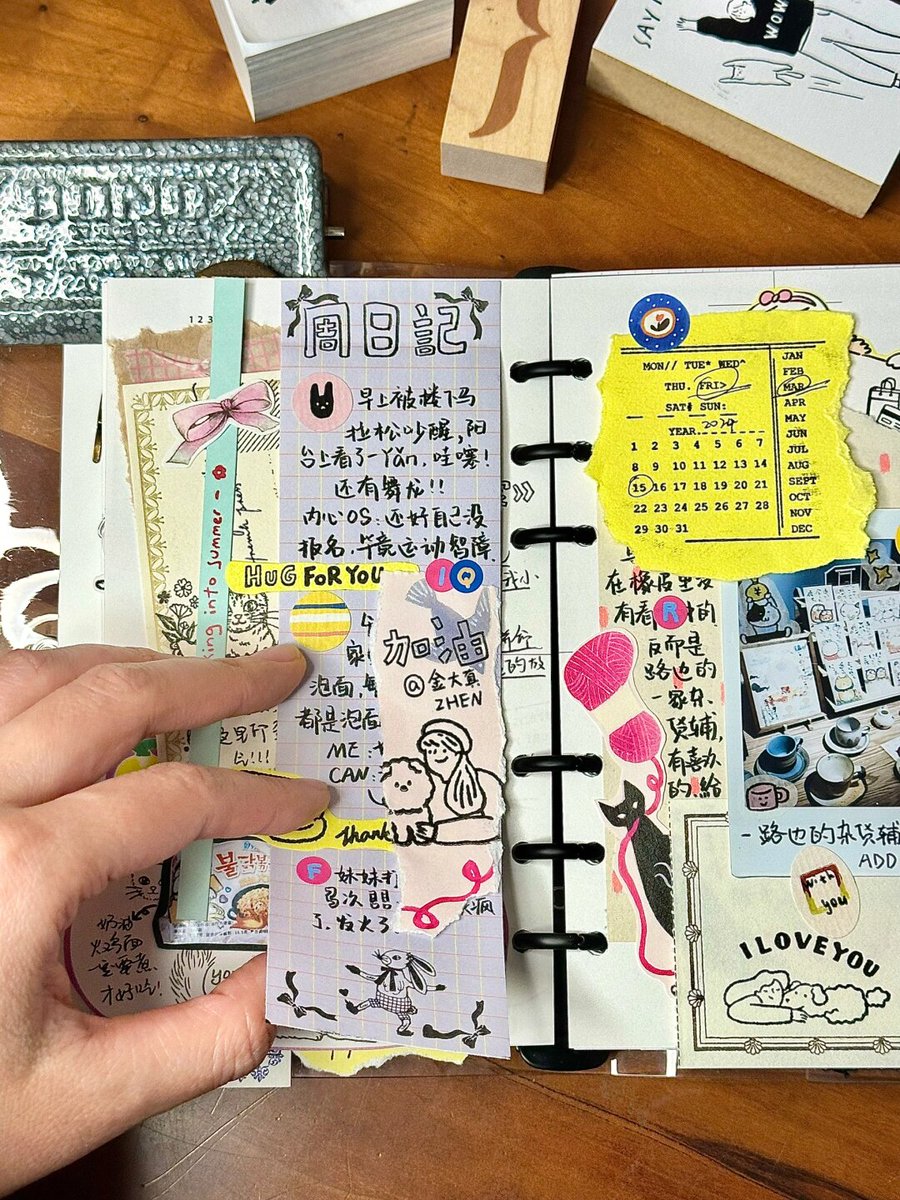 SAY
WOW
123
周日記
早上被楼下马
拉松吵醒,阳
台上看了一Yǎn.哇噻!
还有舞龙!!
内心OS:还好自己没
报名.毕竟运动智障.
HUG FOR YOU
I Q
加油
@金大真
ZHEN
泡面,
都是泡面
ME:
CAN:
thank
F
妹妹打
了.发火了
疯
ing into summer
这里
气!!!
불닭볶
奶油
火鸡面
一定要煮
才好吃!
you
的放
MON// TUE* WED^
THU. FRI>
SAT# SUN:
YEAR. 2024
1 2 3 4 5 6 7
8 9 10 11 12 13 14
15 16 17 18 19 20 21
22 23 24 25 26 27 28
29 30 31
JAN
FEB
MAR
APR
MAY
JUN
JUL
AUG
SEPT
OCT
NOV
DEC
在橡皮里没
有看 R 的
反而是
路也的
一家杂
货铺,
有喜欢
的.給
- 路也的杂货铺
ADD
With
you
I LOVE YOU